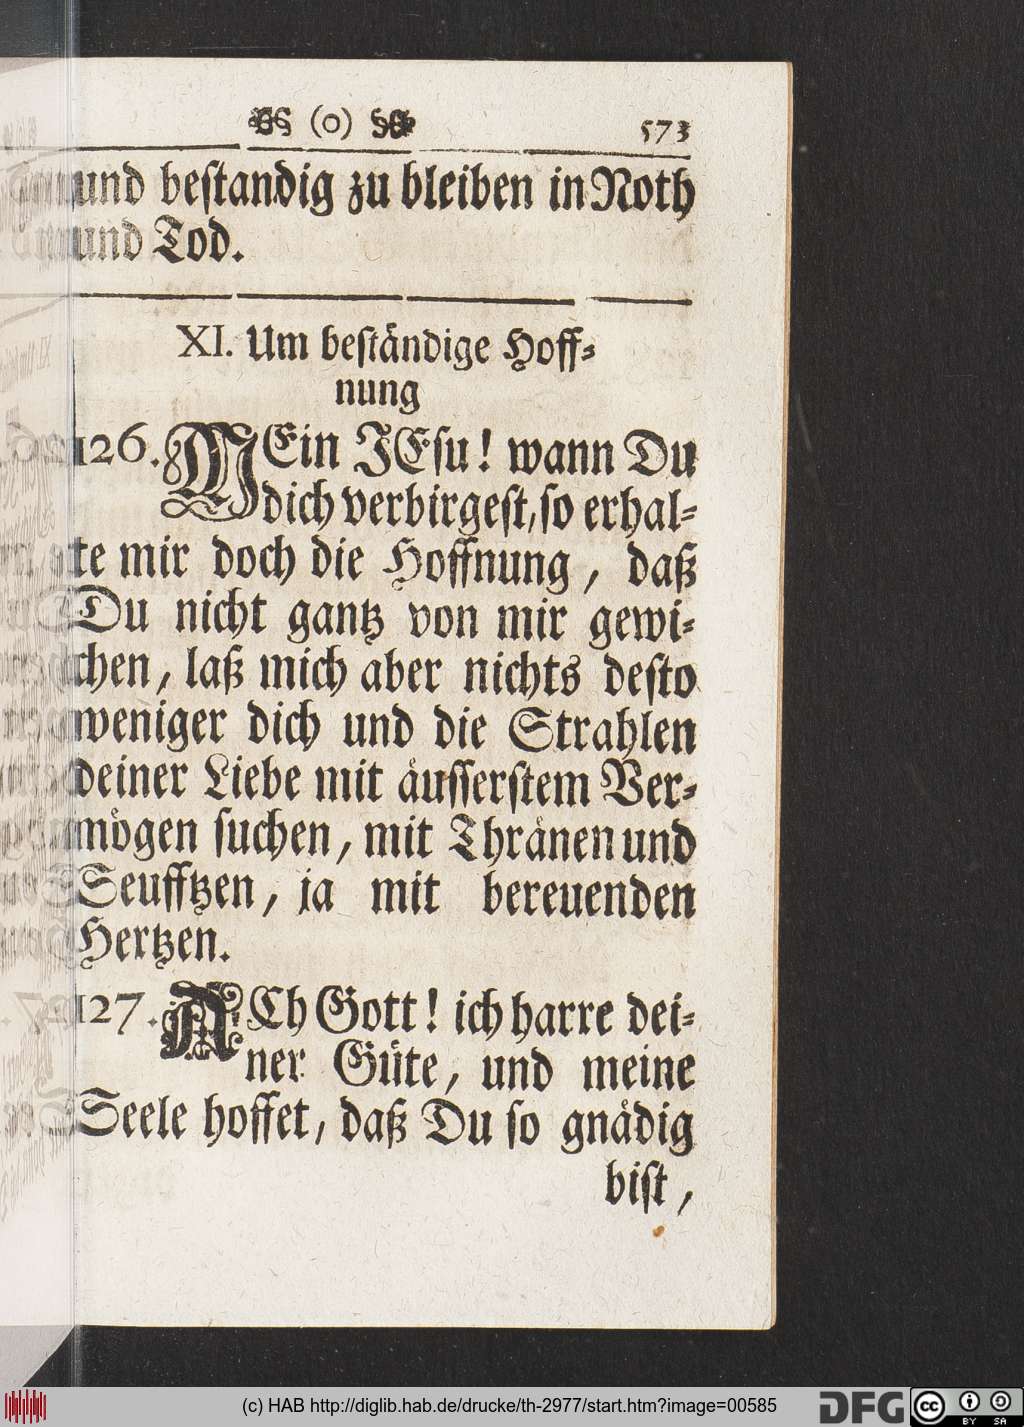 (o) 573
und bestandig zu bleiben in Noth
und Tod.
XI. Um beständige Hoff-
nung
126. MEin JEsu! wann Du
dich verbirgest, so erhal-
te mir doch die Hoffnung, daß
Du nicht gantz von mir gewi-
chen, laß mich aber nichts desto
weniger dich und die Strahlen
deiner Liebe mit äusserstem Ver-
mögen suchen, mit Thränen und
Seufftzen, ja mit bereuenden
Hertzen.
127. ACh Gott! ich harre dei-
ner Güte, und meine
Seele hoffet, daß Du so gnädig
bist,
(c) HAB http://diglib.hab.de/drucke/th-2977/start.htm?image=00585
DFG
cc
BY SA